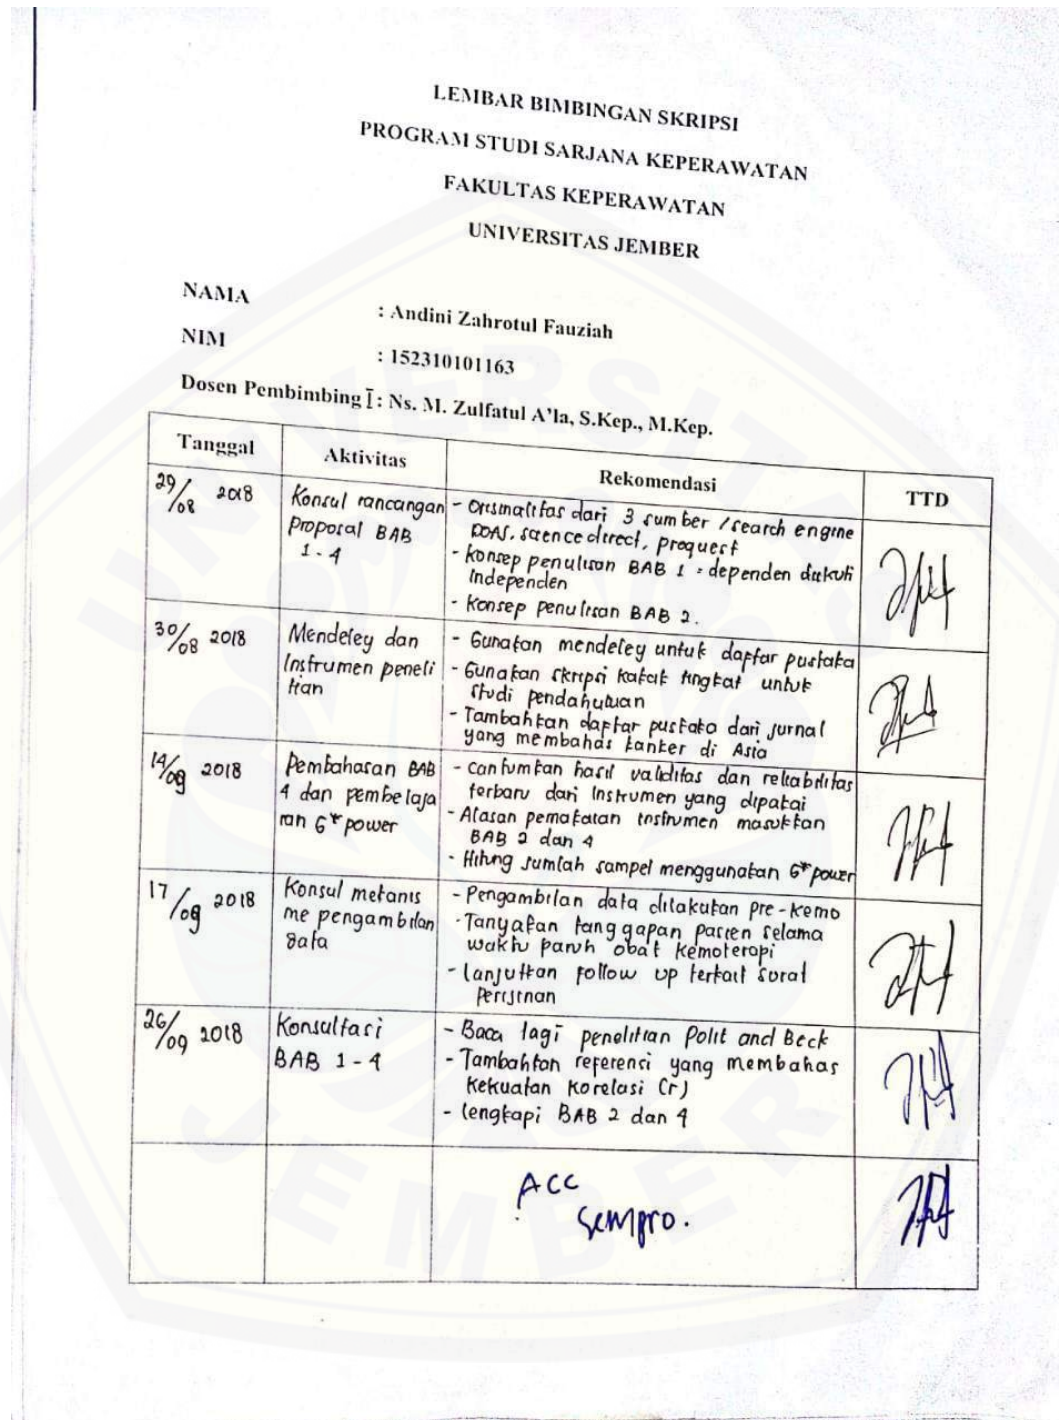 LEMBAR BIMBINGAN SKRIPSI
PROGRAM STUDI SARJANA KEPERAWATAN
FAKULTAS KEPERAWATAN
UNIVERSITAS JEMBER
NAMA : Andini Zahrotul Fauziah
NIM : 152310101163
Dosen Pembimbing I : Ns. M. Zulfatul A'la, S.Kep., M.Kep.
Tanggal Aktivitas Rekomendasi TTD
29/08 2018
Konsul rancangan
proposal BAB
1-4
- Orisinalitas dari 3 sumber / search engine
DOAJ, science direct, proquest
- Konsep penulisan BAB 1 = dependen diikuti
Independen
- Konsep penulisan BAB 2.
30/08 2018
Mendeley dan
Instrumen peneli
tian
- Gunakan mendeley untuk daftar pustaka
- Gunakan skripsi kakak tingkat untuk
studi pendahuluan
- Tambahkan daftar pustaka dari jurnal
yang membahas kanker di Asia
14/09 2018
Pembahasan BAB
4 dan pembelaja
ran G* power
- Cantumkan hasil validitas dan reliabilitas
terbaru dari Instrumen yang dipakai
- Alasan pemakaian instrumen masukkan
BAB 2 dan 4
- Hitung jumlah sampel menggunakan G* power
17/09 2018
Konsul mekanis
me pengambilan
data
- Pengambilan data dilakukan pre-kemo
- Tanyakan tanggapan pasien selama
waktu paruh obat kemoterapi
- lanjutkan follow up terkait surat
Perizinan
26/09 2018
Konsultasi
BAB 1-4
- Baca lagi penelitian Polit and Beck
- Tambahkan referensi yang membahas
kekuatan korelasi (r)
- lengkapi BAB 2 dan 4
ACC
Sempro.
UNIVERSITAS
JEMBER